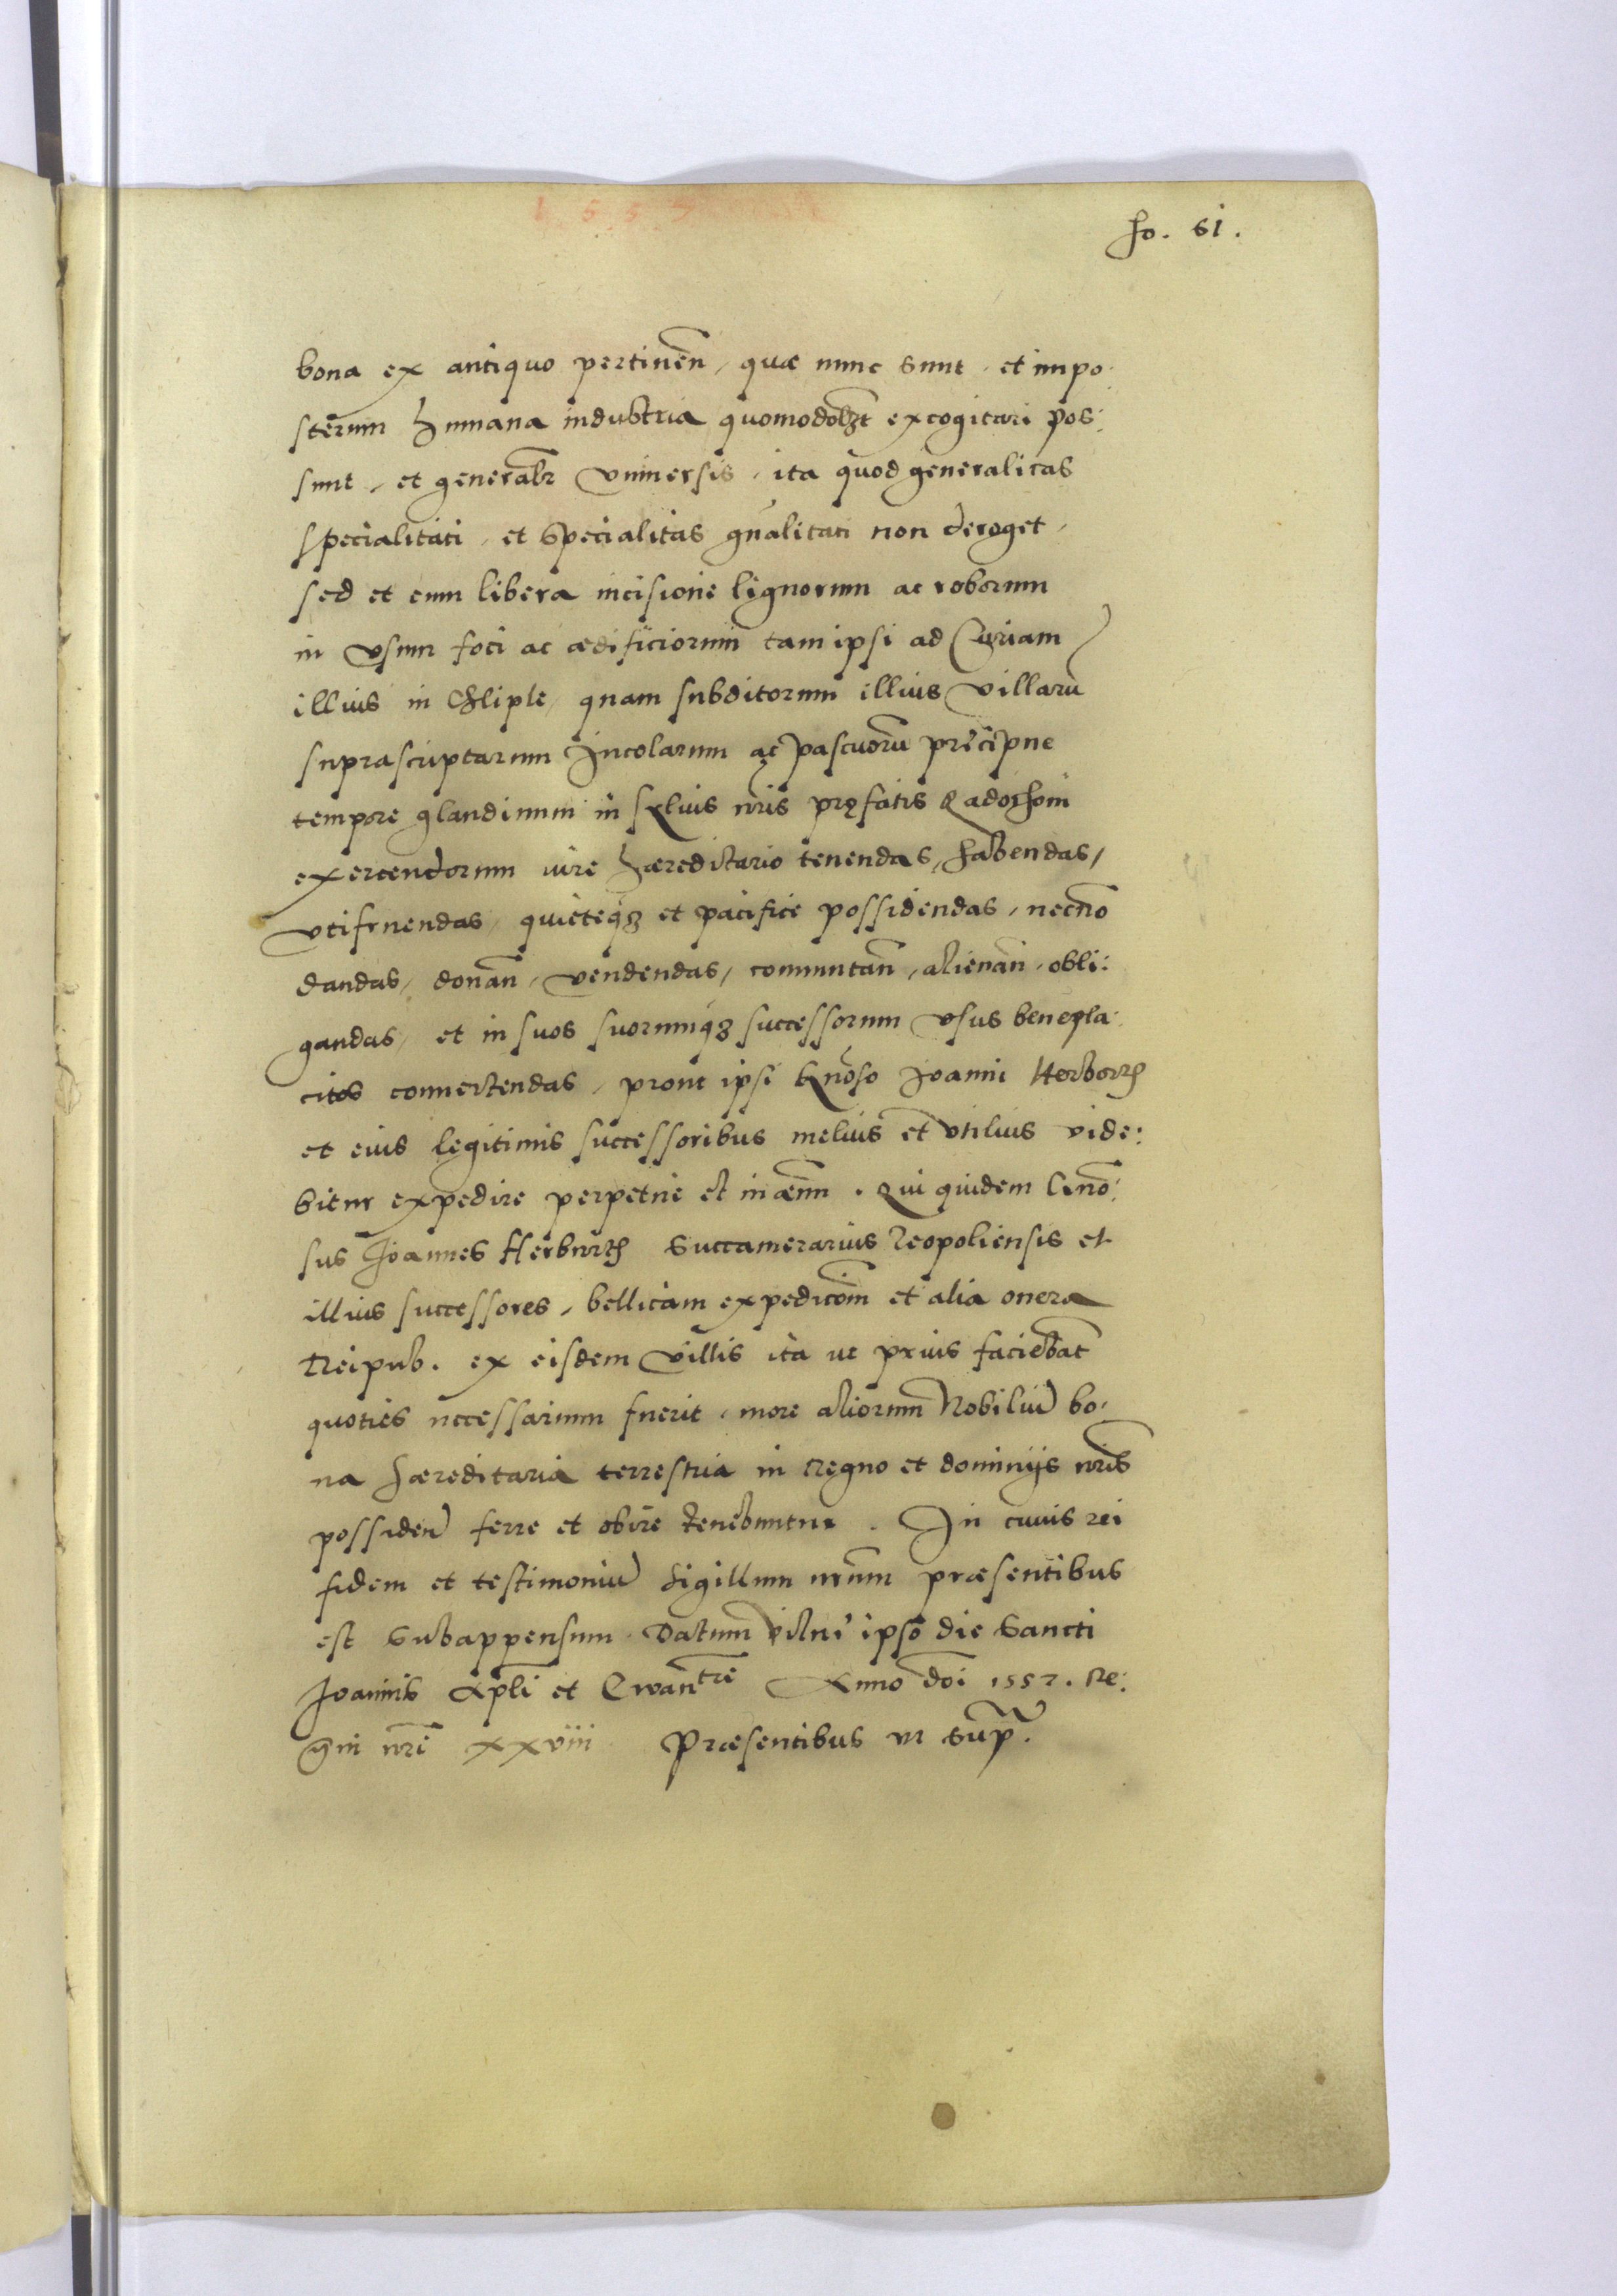 1 5 5 7
fo. 61.
bona ex antiquo pertineñ, quæ nunc sunt, et impo:
sterum humana industria quomodolȝt excogitari pos:
sunt, et generalr̃ vniuersis, ita quod generalitas
specialitati, et specialitas gñalitati non deroget,
sed et cum libera incisione lignorum ac roborum
in vsum foci ac ædificiorum tam ipsi ad Curiam
illius in Chliple, quam subditorum illius villarũ
suprascriptarum Incolarum ac pascuorũ precipue
tempore glandinum in sylvis nr̃is pręfatis
exercendorum iure hæreditario tenendas, habendas,
vtifruendas, quieteqȝ et pacifice possidendas, necnõ
dandas, donañ, vendendas, commutañ, alienañ, obli:
gandas, et in suos suorumqȝ successorum vsus benepla:
citos conuertendas, prout ipsi Gnõso Joanni Herborth
et eius legitimis successoribus melius et vtilius vide:
bitur expedire perpetue et in æũm. Qui quidem Gnõ:
sus Joannes Herburth Succamerarius Leopoliensis et
illius successores, bellicam expedicõm et alia onera
Reipub. ex eisdem villis ita ut prius faciebãt
quoties necessarium fuerit, more aliorum Nobiliũ bo:
na hæreditaria terrestria in Regno et dominijs nr̃is
possideñ ferre et obire tenebuntur. In cuius rei
fidem et testimoniũ sigillum nr̃um præsentibus
est subappensum. Datum Vilnæ ipso die Sancti
Joannis Apl̃i et Ewangẽ Anno dñi 1557. Re:
gni nr̃i xxviii Præsentibus ut sup̃.